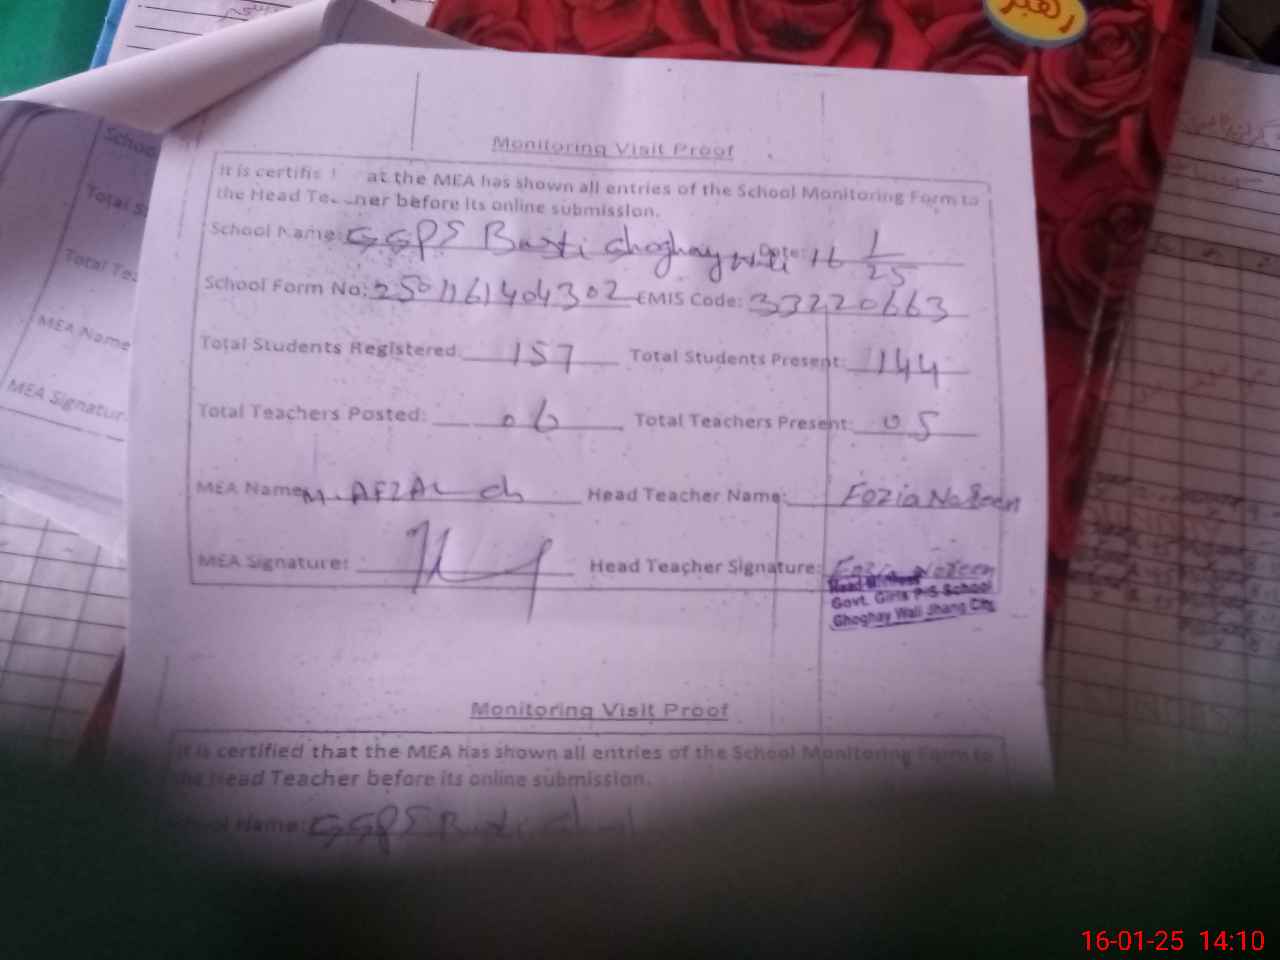 رهبر
Monitoring Visit Proof
It is certifie at the MEA has shown all entries of the School Monitoring Form to
the Head Teacher before its online submission.
School Name: GGPS Basti Ghoghay wali Date: 16 1/25
School Form No: 2501161404302 EMIS Code: 33220663
Total Students Registered: 157 Total Students Present: 144
Total Teachers Posted: 06 Total Teachers Present: 05
MEA Name: M. AFZAL ch Head Teacher Name: Fozia Noreen
MEA Signature: Head Teacher Signature: Fozia Noreen
Govt. Girls P/S School
Ghoghay Wali Jhang City
Monitoring Visit Proof
It is certified that the MEA has shown all entries of the School Monitoring Form to
the Head Teacher before its online submission.
School Name: GGPS Basti
School
Total
Total Tea
MEA Name
MEA Signatur
16-01-25 14:10